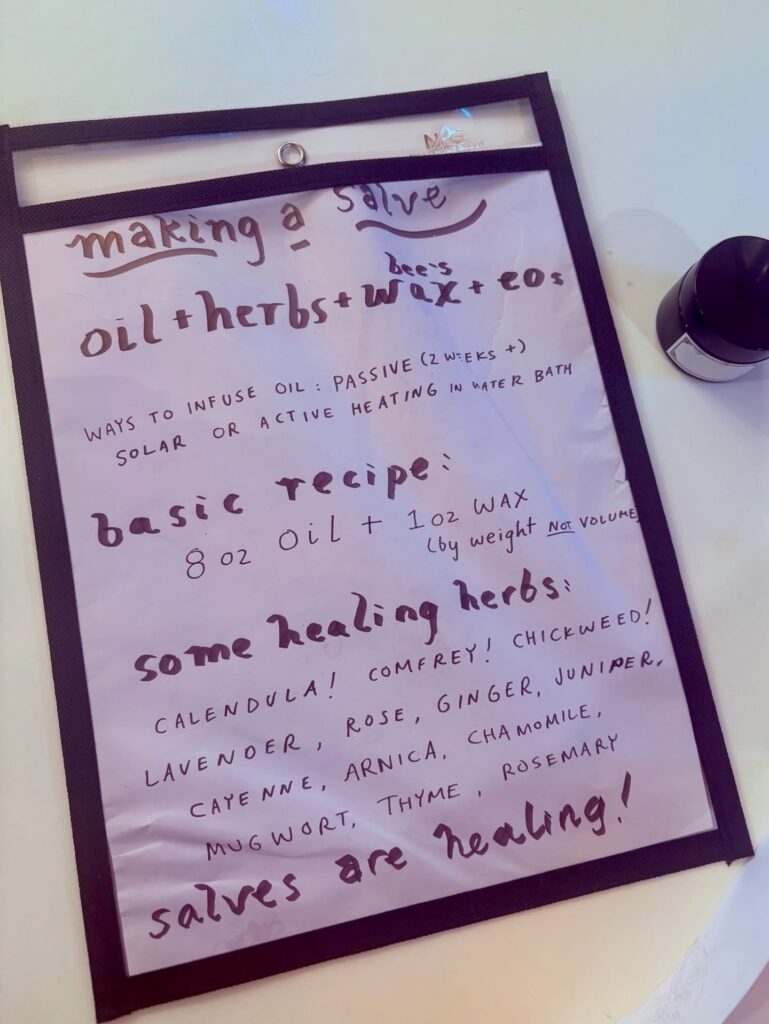 making a salve
oil + herbs + bee's wax + eos
WAYS TO INFUSE OIL : PASSIVE (2 WEEKS +)
SOLAR OR ACTIVE HEATING IN WATER BATH
basic recipe:
8 oz oil + 1 oz WAX
(by weight NOT VOLUME)
some healing herbs:
CALENDULA! COMFREY! CHICKWEED!
LAVENDER, ROSE, GINGER, JUNIPER,
CAYENNE, ARNICA, CHAMOMILE,
MUGWORT, THYME, ROSEMARY
salves are healing!